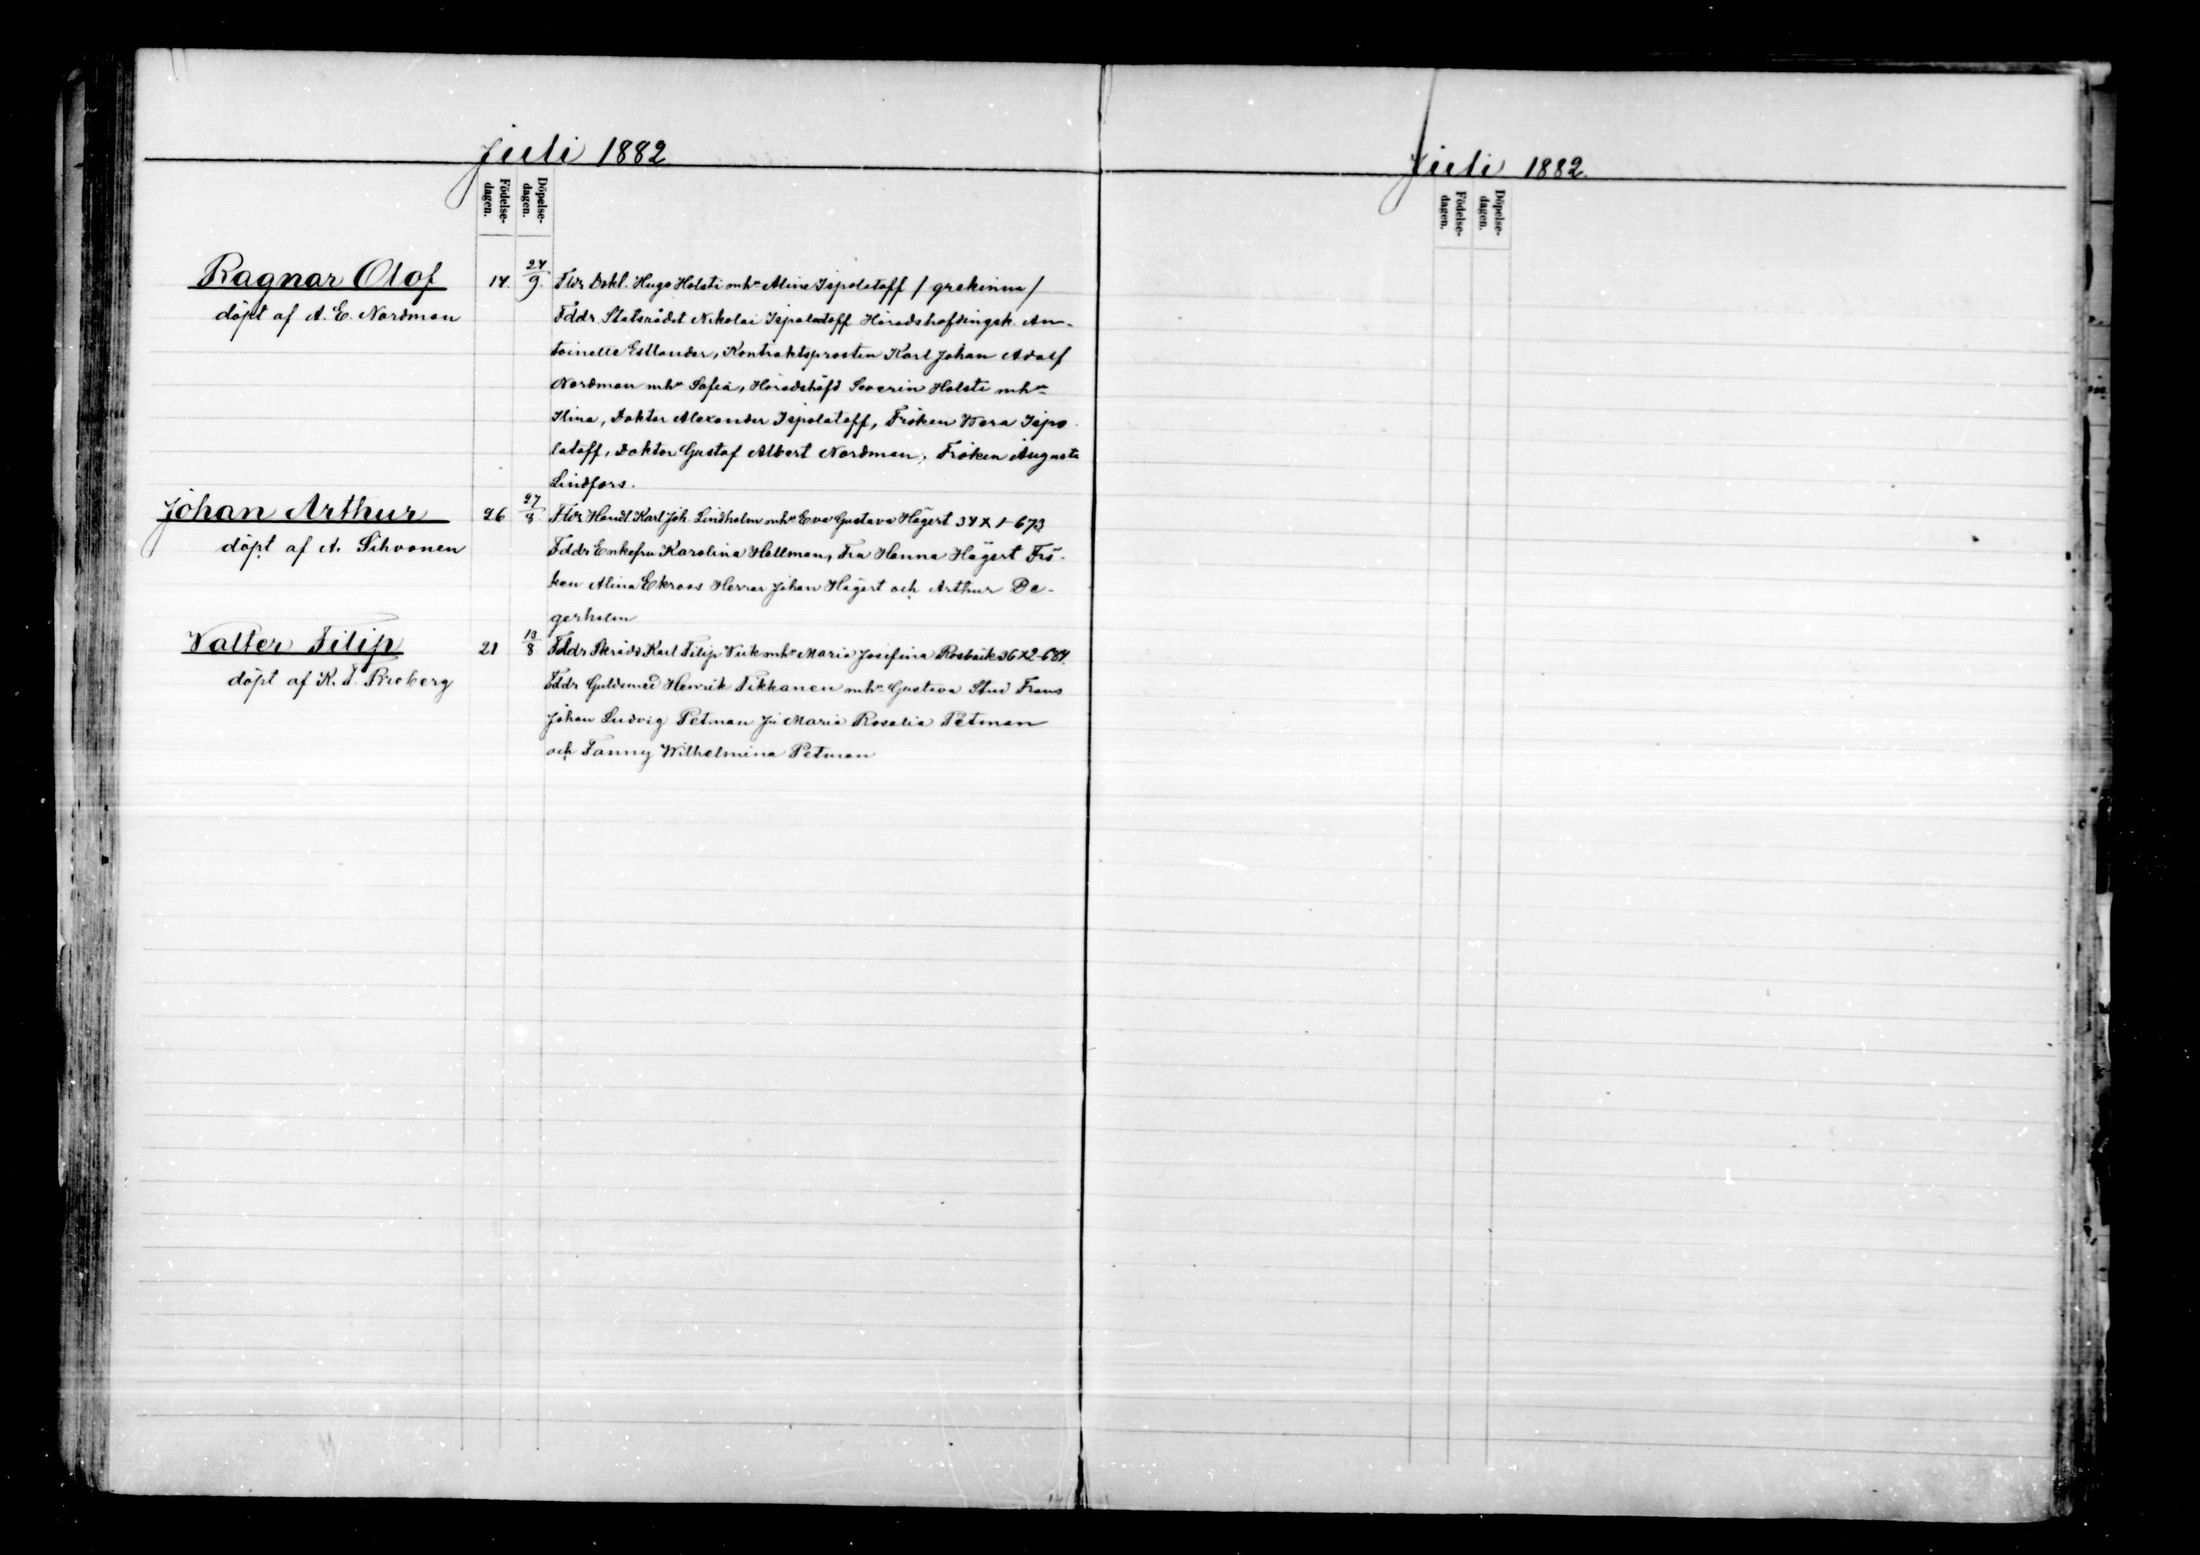 Juli 1882
Födelse-
dagen.
Döpelse-
dagen.
Ragnar Olof
döpt af A. E. Nordman
14.
24/9.
Fldr Dokt. Hugo Holsti mhu Aline Ispolatoff / grekinna /
Fddr Statsrådet Nikolai Ispolatoff Häradshöfdingsk. An-
toinette Estlander, Kontraktsprosten Karl Johan Adolf
Nordman mhu Sofia, Häradshöfd Severin Holsti mhu
Ilina, Doktor Alexander Ispolatoff, Fröken Wera Ispo
latoff, Doktor Gustaf Albert Nordman, Fröken Augusta
Lindfors.
Johan Arthur
döpt af A. Sihvonen
26
27/8
Fldr Handl. Karl Joh. Lindholm mhu Eva Gustava Hägert 34 X 1-673
Fddr Enkefru Karolina Hellman, Fru Hanna Hägert Frö-
ken Alina Ekroos Herrar Johan Hägert och Arthur De-
gerholm
Valter Filip
döpt af K. F. Froberg
21
13/8
Fldr Skrädd Karl Filip Wik mhu Maria Josefina Rosbäck 36 X 2-684.
Fddr Guldsmed Henrik Tikkanen mhu Gustava Stud Frans
Johan Ludvig Petman Ju Maria Rosalia Petman
och Fanny Wilhelmina Petman
Juli 1882.
Födelse-
dagen.
Döpelse-
dagen.